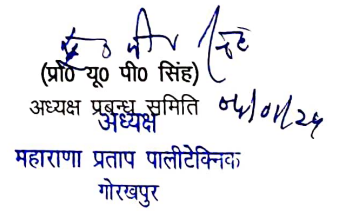 (प्रो0 यू0 पी0 सिंह)
अध्यक्ष प्रबन्ध समिति
अध्यक्ष
महाराणा प्रताप पालीटेक्निक
गोरखपुर